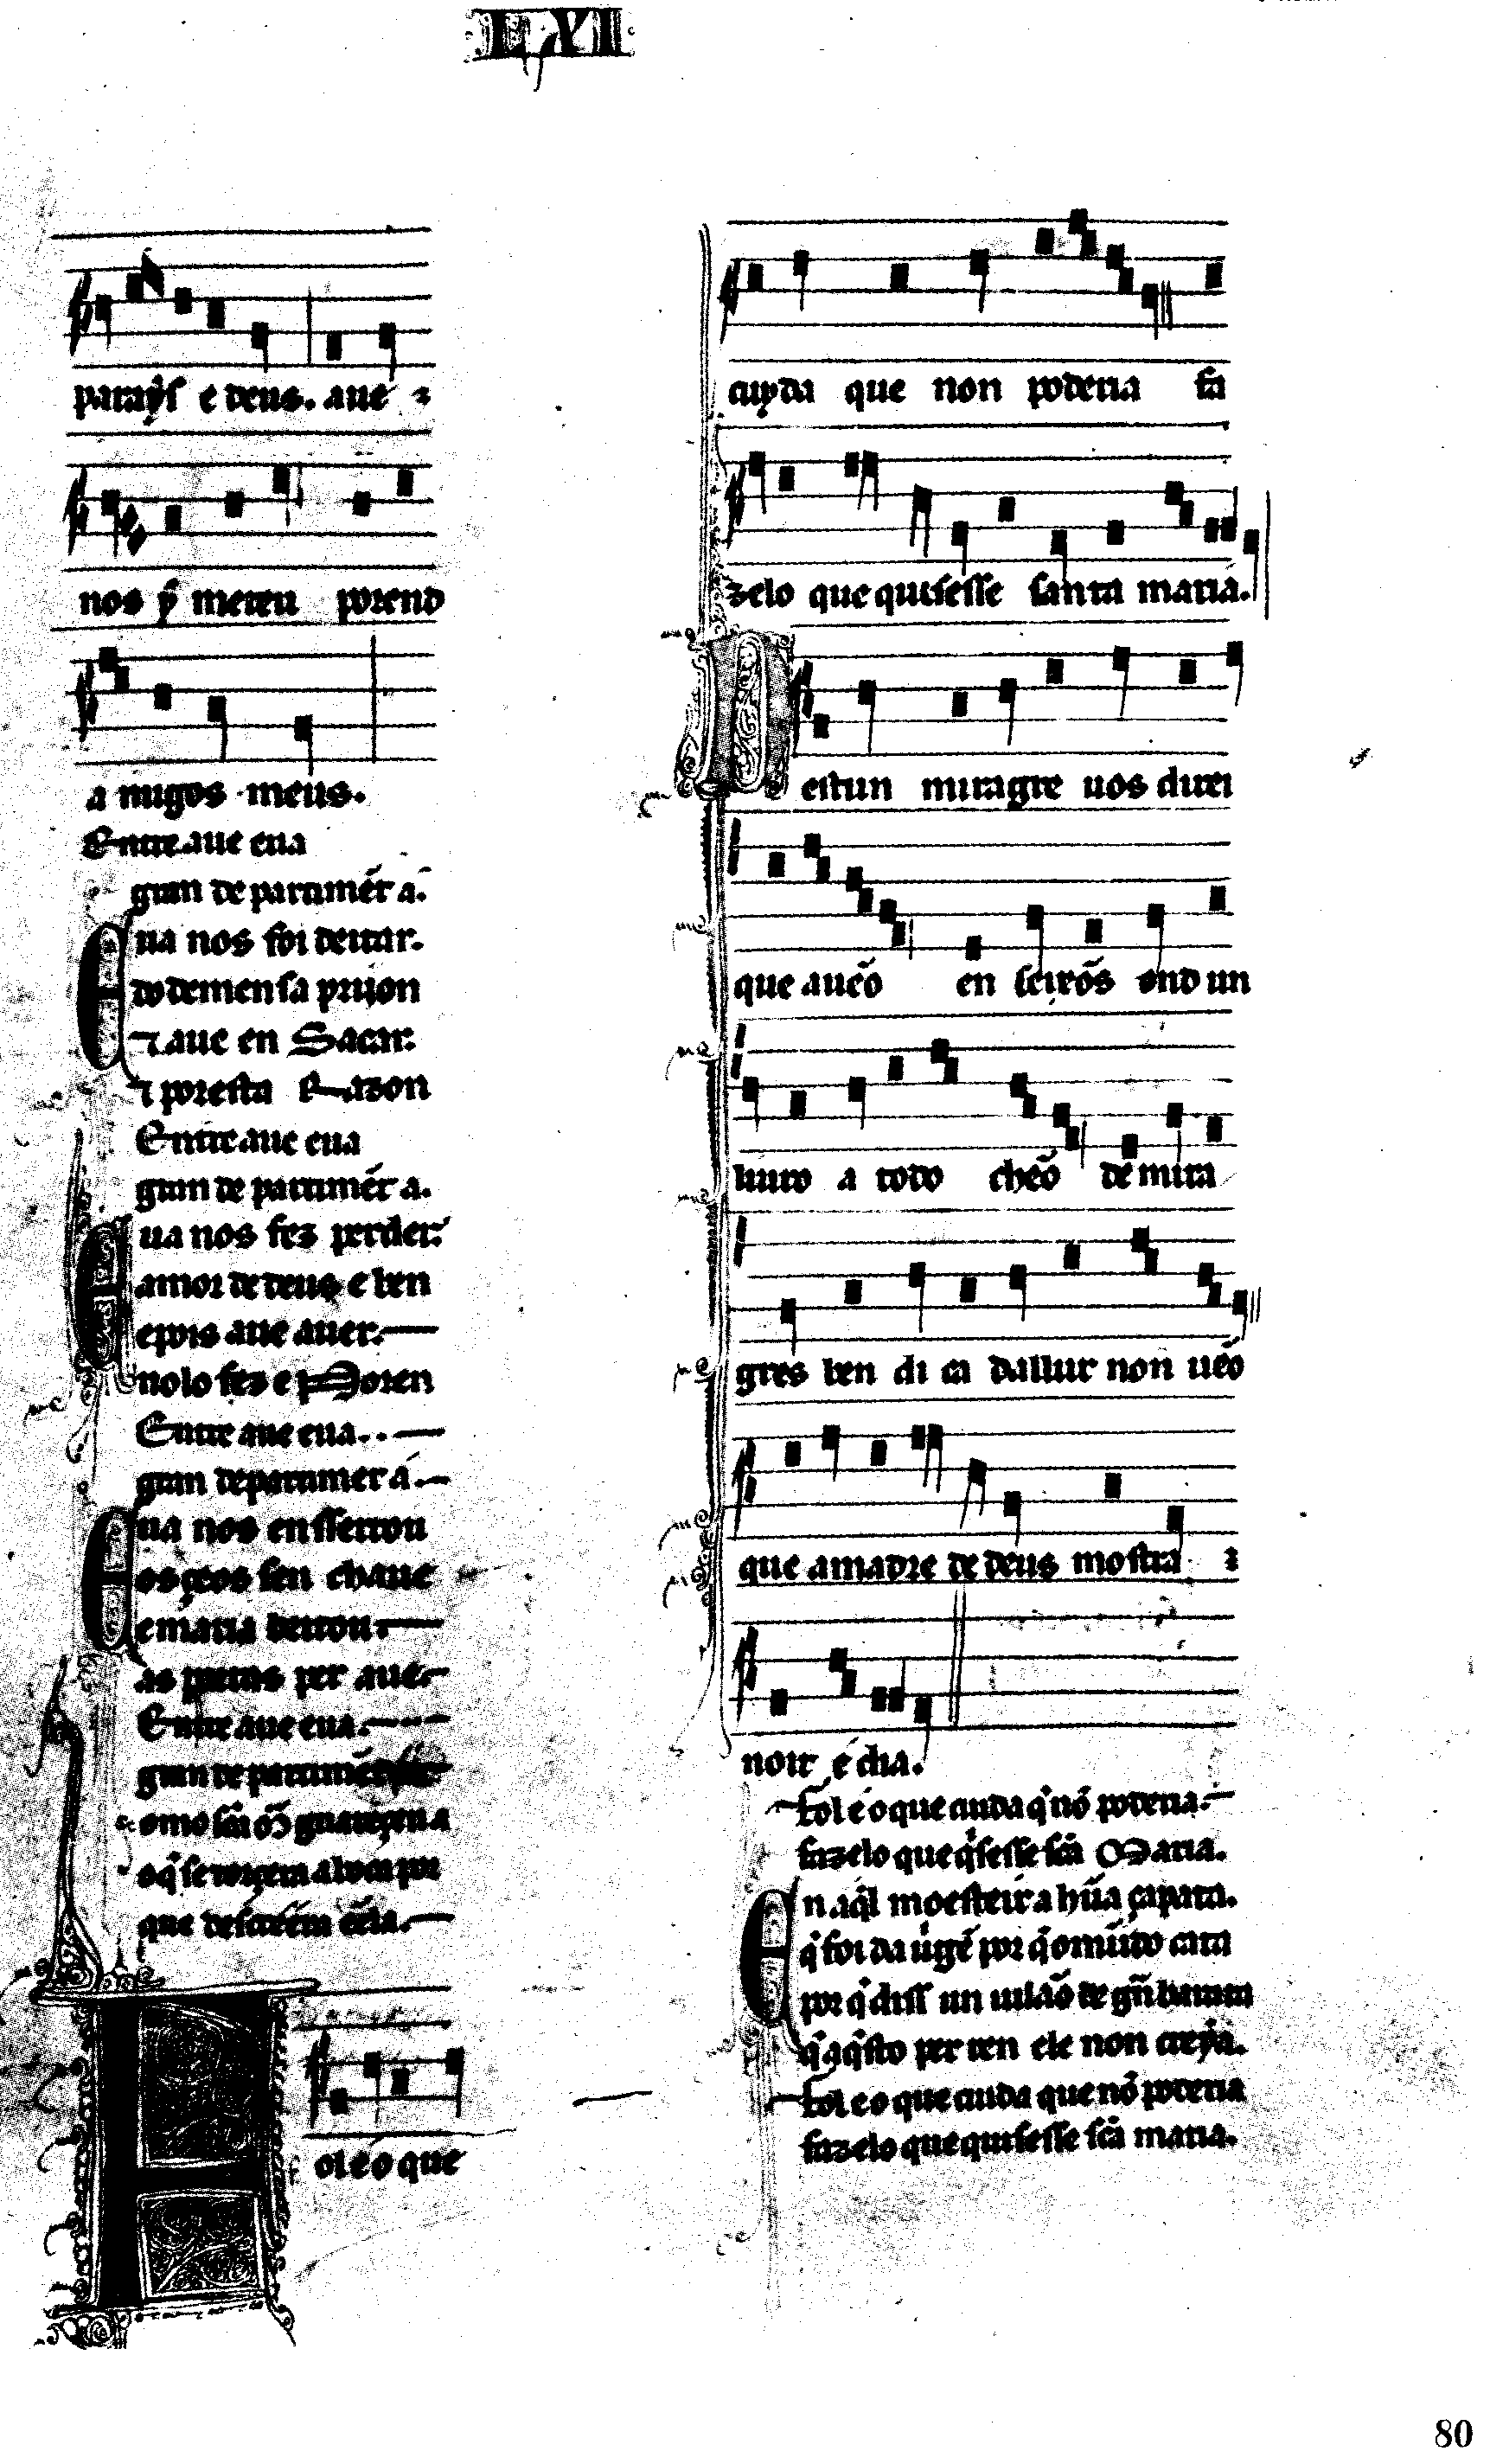 LXI
parayſ e deus. aue ⁊
nos ꝑ̃ meteu porend
amigos meus.
Entre aue eua
gran de partimẽt a.
Eua nos foi deitar.
do dem en ſa priion
⁊ aue en Sacar.
⁊ por eſta Razon
Entre aue eua
gran de partimẽt a.
Eua nos fez perder.
amor de deus e ben
e pois aue auer.
nolo fez e poren
Entre aue eua..
gran departimet a.
Eua nos enſſerrou
os çeos ſen chaue
e maria britou
as portas per aue.
Entre aue eua.
gran de partimẽt
omo ſcã
que deſcreẽra ẽela.
Fol é o que
cuyda que non poderia fa
zelo que quiſeſſe ſanta maria.
Deſt un miragre uos direi
que auẽo en ſeixõs ond un
liuro a todo chẽo de mira
gres ben di ca dallur non uẽo
que a madre de deus moſtra ⁊
noit e dia.
Fol é o que cuida q̃ nõ poderia.
fazelo que q̃ſeſſe ſcã Maria.
En aq̃l moeſteir a hũa çapata.
q̃ foi da uirgẽ por q̃ o mũdo cata
por q̃ diſſ un uilão de gñ barata
q̃ aq̃ſto per ren ele non creýa.
Fol e o que cuida que nõ poderia
fazelo que quiſeſſe ſcã maria.
80